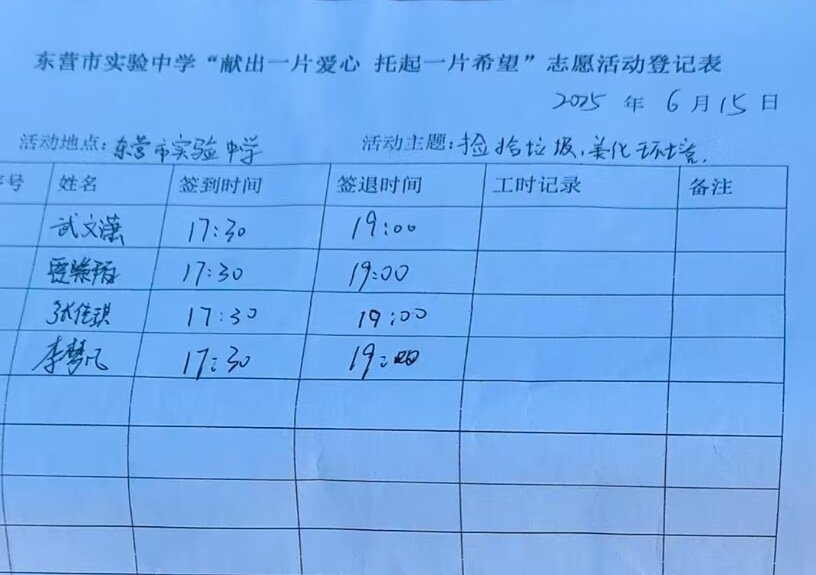 东营市实验中学“献出一片爱心 托起一片希望”志愿活动登记表
2025 年 6 月 15 日
活动地点：东营市实验中学 活动主题：捡拾垃圾、美化环境.
号 姓名 签到时间 签退时间 工时记录 备注
武文潇 17:30 19:00
17:30 19:00
张佳琪 17:30 19:00
李梦凡 17:30 19:00